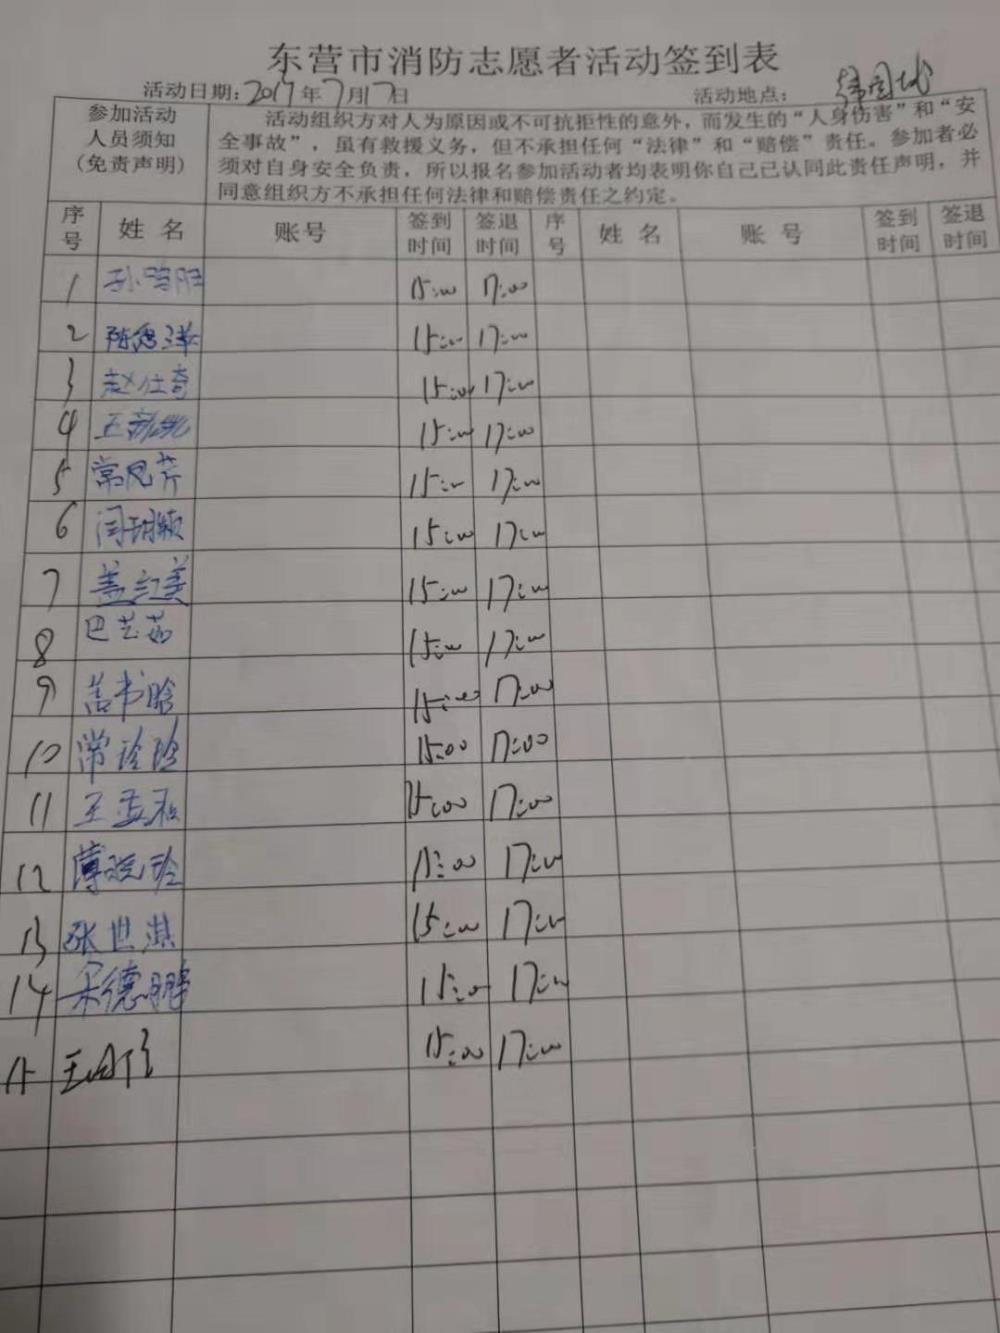 东营市消防志愿者活动签到表
活动日期：2019年7月17日 活动地点：
参加活动人员须知（免责声明）
活动组织方对人为原因或不可抗拒性的意外，而发生的“人身伤害”和“安
全事故”，虽有救援义务，但不承担任何“法律”和“赔偿”责任。参加者必
须对自身安全负责，所以报名参加活动者均表明你自己已认同此责任声明，并
同意组织方不承担任何法律和赔偿责任之约定。
序号 姓名 账号 签到时间 签退时间 序号 姓名 账号 签到时间 签退时间
1 15:00 17:00
2 15:00 17:00
3 赵仕奇 15:00 17:00
4 15:00 17:00
5 常凤芹 15:00 17:00
6 闫玥颖 15:00 17:00
7 盖红美 15:00 17:00
8 巴艺茹 15:00 17:00
9 盖书晗 15:00 17:00
10 常玲玲 15:00 17:00
11 15:00 17:00
12 薄晓玲 15:00 17:00
13 张世淇 15:00 17:00
14 宋德鹏 15:00 17:00
15 15:00 17:00